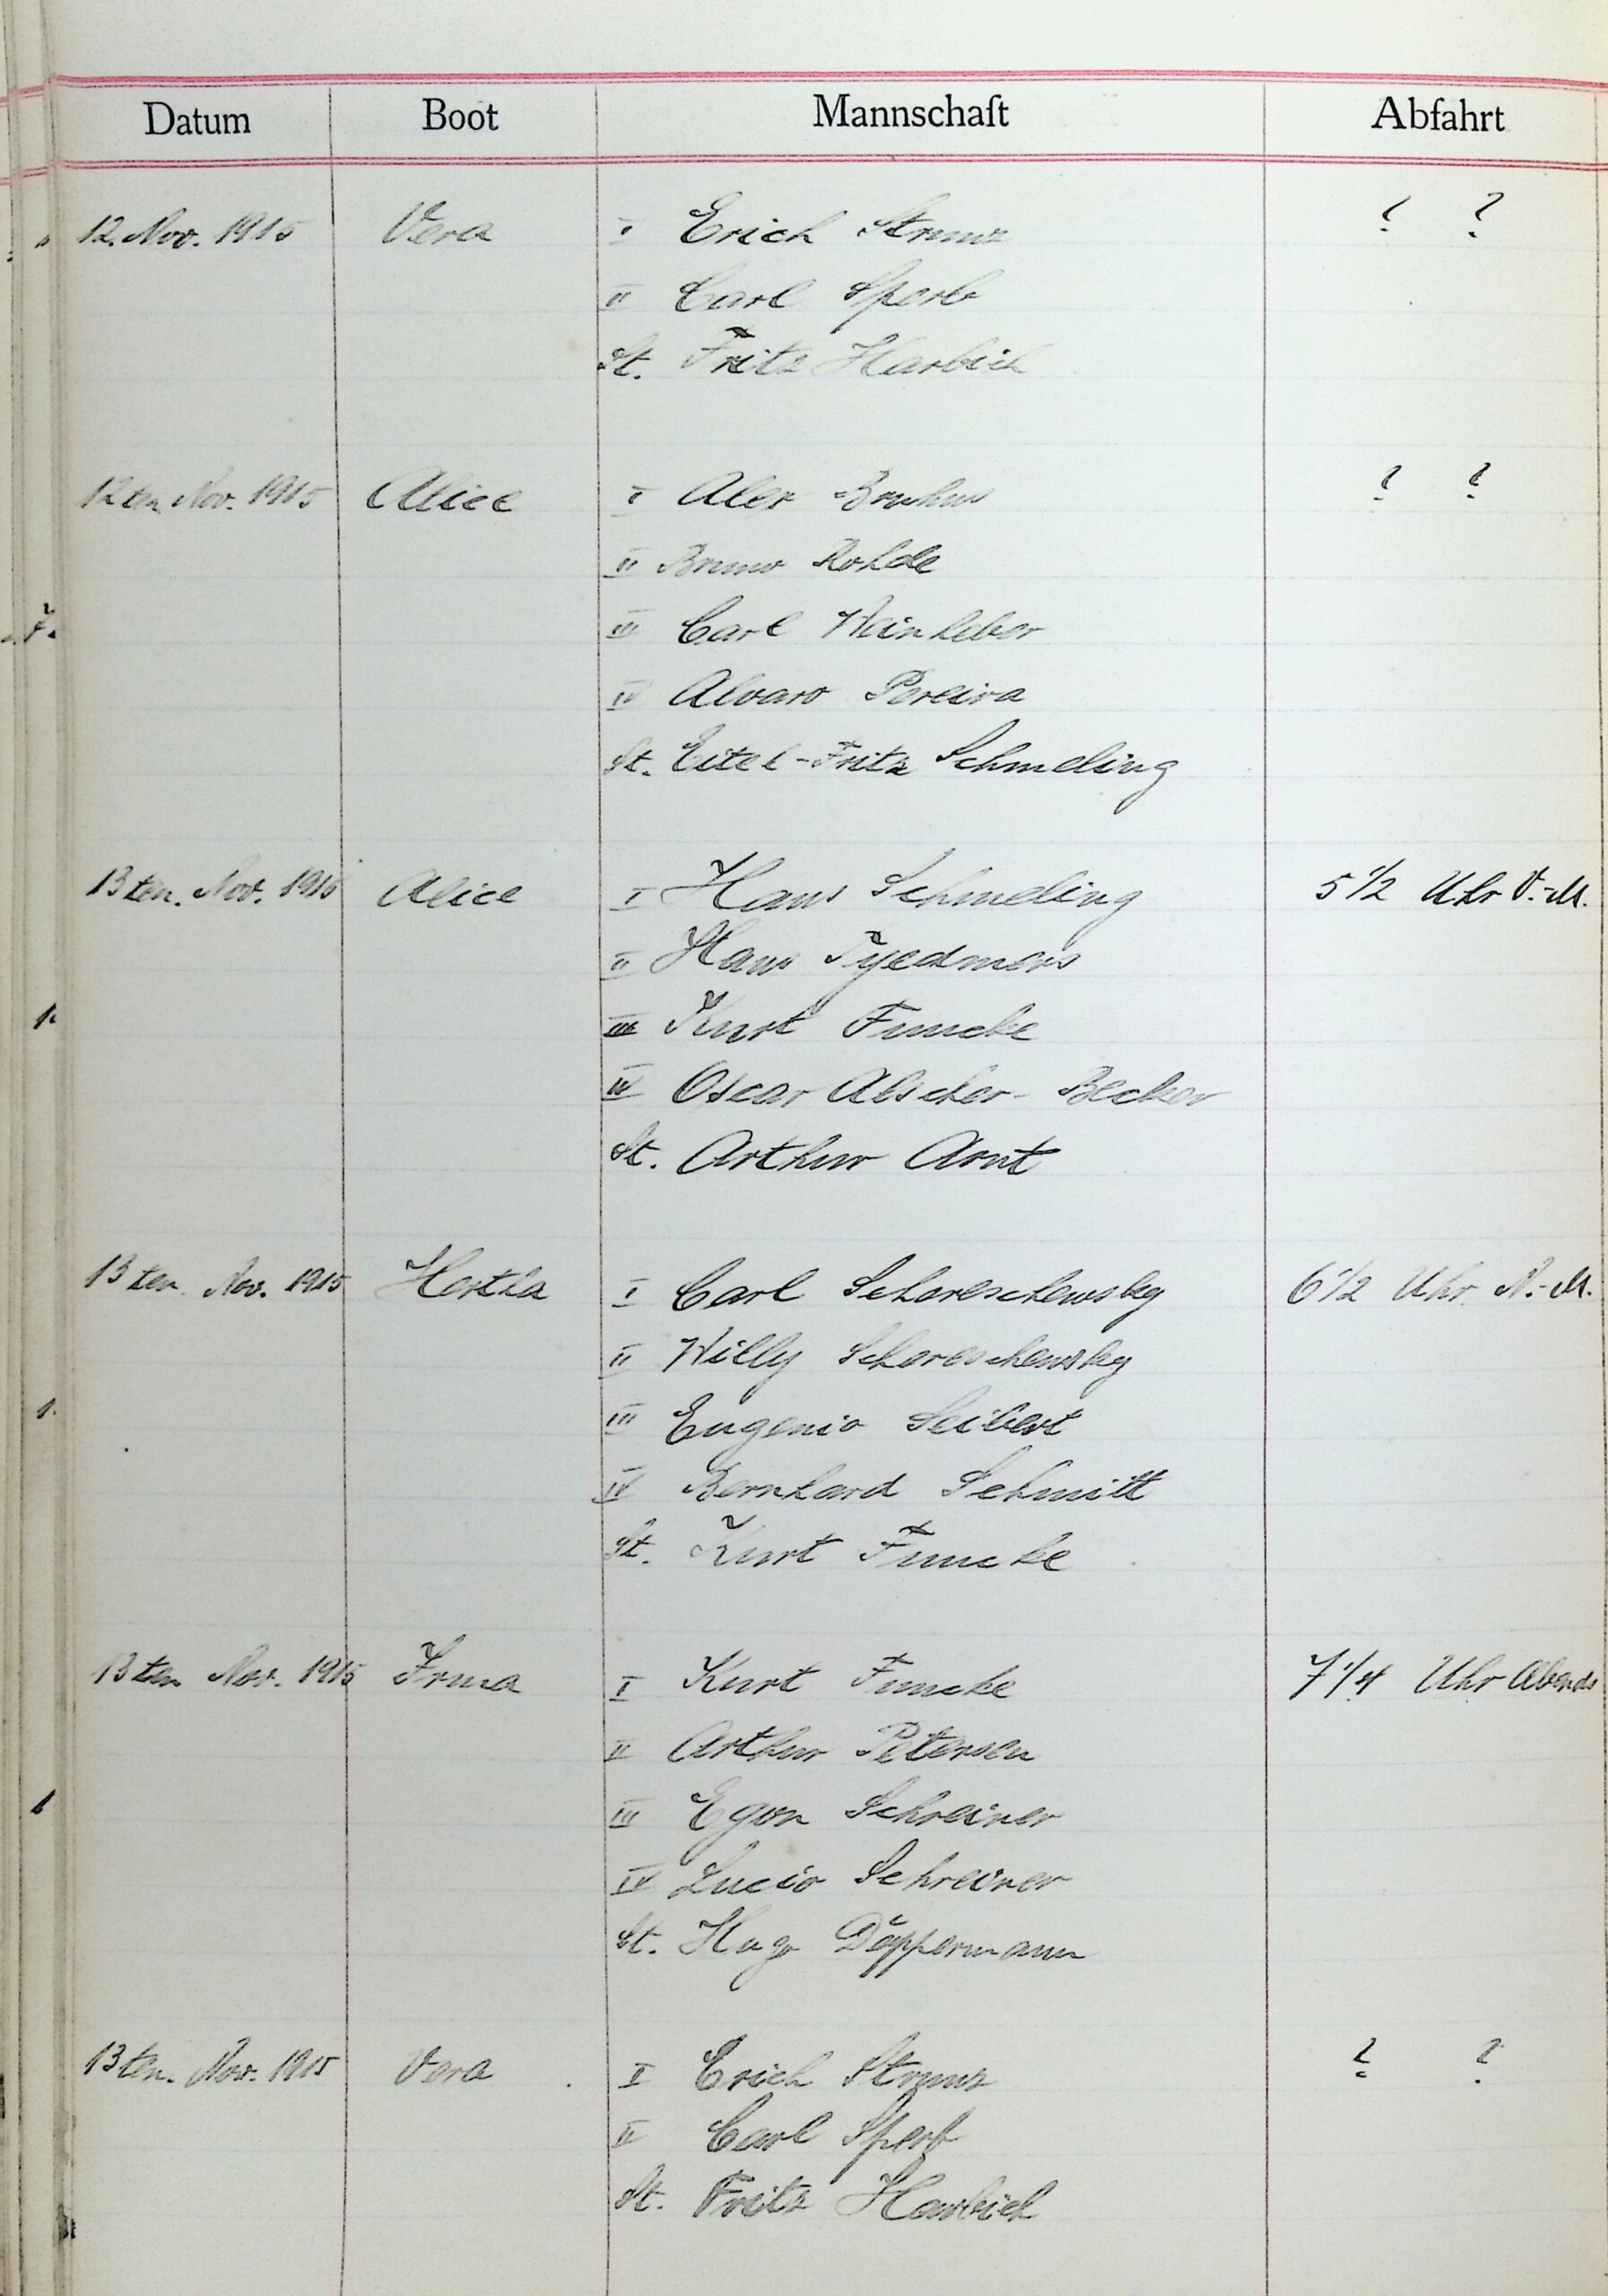 Datum Boot Mannschaft Abfahrt
12. Nov. 1915 Vera I Erich Strunz ? ?
II Carl Sperb
St. Fritz Harbich
12ten Nov. 1915 Alice I Alex Bruhns ? ?
II Bruno Rohde
III Carl Weinheber
IV Alvaro Pereira
St. Eitel-Fritz Schmeling
13ten. Nov. 1915 Alice I Hans Schmeling 5 1/2 Uhr V.-M.
II Hans Tyedmers
III Kurt Funcke
IV Oscar Alscher-Becker
St. Arthur Arnt
13ten Nov. 1915 Hertha I Carl 6 1/2 Uhr N.-M.
II Willy
III Eugenio Seibert
IV Bernhard Schmitt
St. Kurt Funcke
13ten Nov. 1915 Irma I Kurt Funcke 7 1/4 Uhr Abends
II Arthur Petersen
III Egon Schreiner
IV Lucio Schreiner
St. Hugo Döppermann
13ten. Nov. 1915 Vera I Erich Strunz ? ?
II Carl Sperb
St. Fritz Harbich